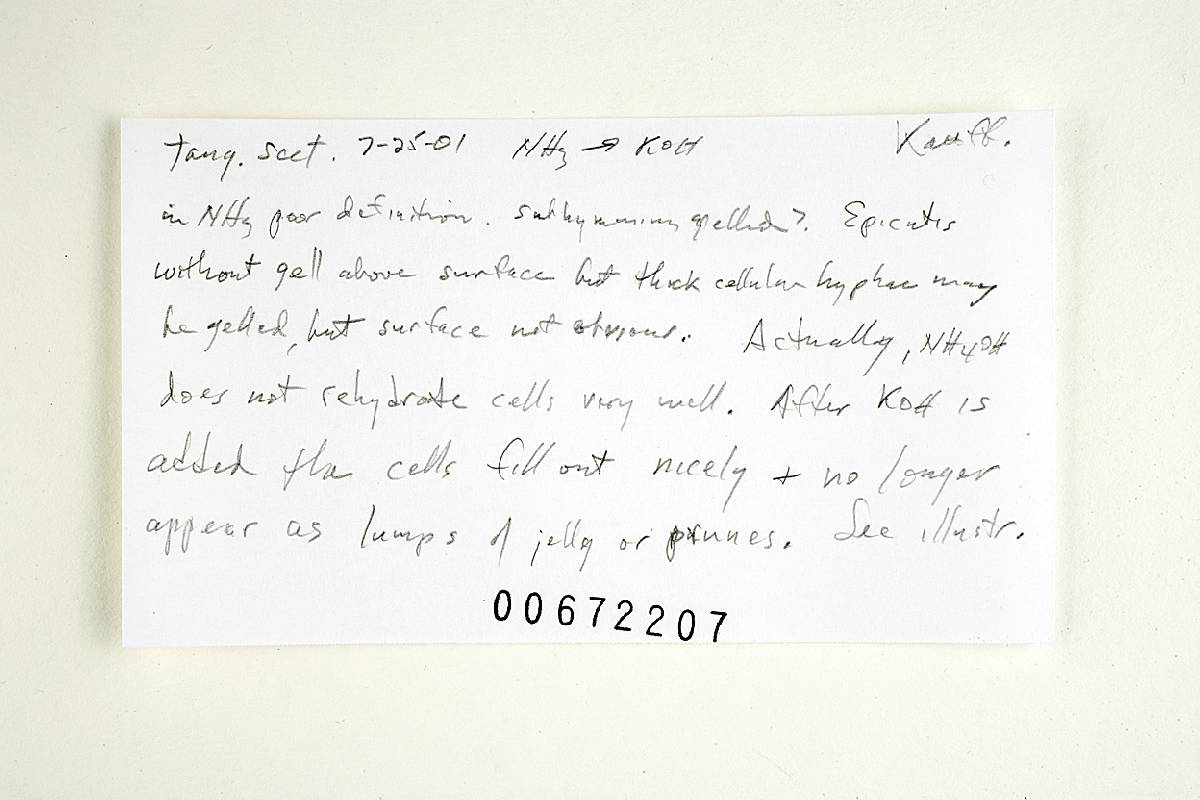 tang. sect. 7-25-01 NH3 → KOH Kauff.
in NH3 poor definition. subhymenium gelled?. Epicutis
without gell above surface but thick cellular hyphae may
be gelled, but surface not obvious. Actually, NH4OH
does not rehydrate cells very well. After KOH is
added the cells fill out nicely + no longer
appear as lumps of jelly or prunes. See illustr.
00672207